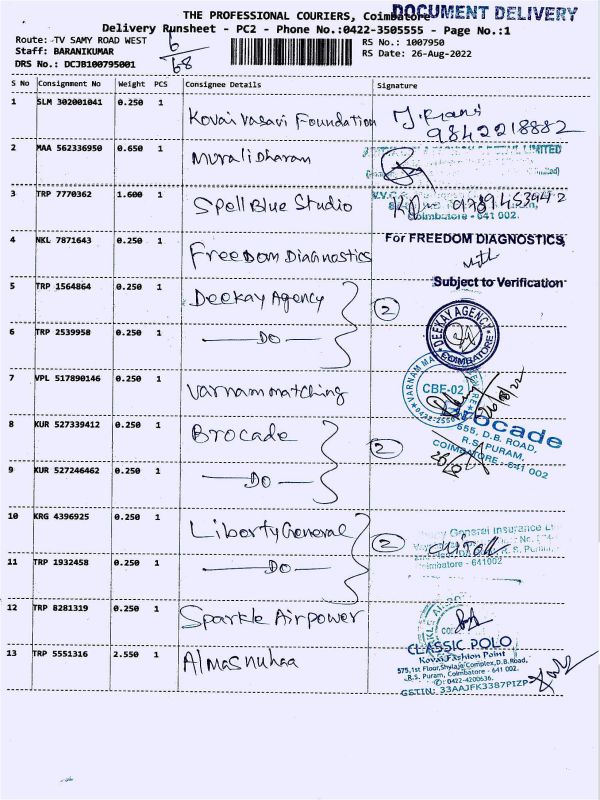 THE PROFESSIONAL COURIERS, Coimbatore
DOCUMENT DELIVERY
Delivery Runsheet - PC2 - Phone No.:0422-3505555 - Page No.:1
Route: -TV SAMY ROAD WEST
6/68
RS No.: 1007950
Staff: BARANIKUMAR
RS Date: 26-Aug-2022
DRS No.: DCJB100795001
S No Consignment No Weight PCS Consignee Details Signature
1 SLM 302001041 0.250 1 Kovai Vasavi Foundation
9842218882
2 MAA 562336950 0.650 1 Murali Dharan
LIMITED
3 TRP 7770362 1.600 1 Spell Blue Studio
Coimbatore - 641 002.
4 NKL 7871643 0.250 1 Freedom Diagnostics
For FREEDOM DIAGNOSTICS,
Subject to Verification
5 TRP 1564864 0.250 1 Deekay Agency 2
6 TRP 2539958 0.250 1 DO
DEEKAY AGENCY
COIMBATORE
7 VPL 517890146 0.250 1 Varnam matching
CBE-02
26/8/22
8 KUR 527339412 0.250 1 Brocade 2
Brocade
555, D.B. ROAD,
R.S. PURAM,
COIMBATORE - 641 002
9 KUR 527246462 0.250 1 DO
10 KRG 4396925 0.250 1 Liberty General 2
General Insurance
R. S. Puram,
Coimbatore - 641002
11 TRP 1932458 0.250 1 DO
12 TRP 8281319 0.250 1 Sparkle Airpower
13 TRP 5551316 2.550 1 Almasnuhaa
CLASSIC POLO
Kovai Fashion Point
575, 1st Floor, Shylaja Complex, D.B. Road,
R.S. Puram, Coimbatore - 641 002.
✆: 0422-4200636.
GSTIN: 33AAJFK3387P1ZP